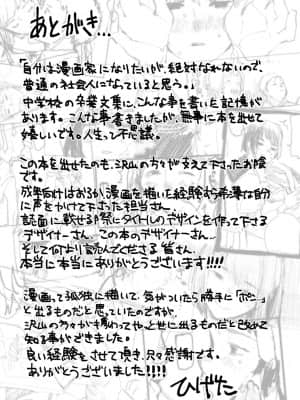 あとがき...
「自分は漫画家になりたいが、絶対なれないので、
普通の社会人になっていると思う。」
中学校の卒業文集に、こんな事を書いた記憶が
あります。こんな事書きましたが、無事に本を出せて
嬉しいです。人生って不思議。
この本を出せたのも、沢山の方々が支えて下さったお陰
です。
成年向けはおろか漫画を描いた経験すら希薄な自分
に声をかけて下さった担当さん。
誌面に載せる際にタイトルのデザインを作って下さる
デザイナーさん。この本のデザイナーさん。
そして何より読んでくださる皆さん。
本当に本当にありがとうございます!!!!
漫画って孤独に描いて、気がついたら勝手に「ポンッ」
と出るものだと思っていたのですが、
沢山の方々が携わってやっと世に出るものだと改めて
知る事ができました。
良い経験をさせて頂き、只々感謝です。
ありがとうございました!!!!
ひげなむち